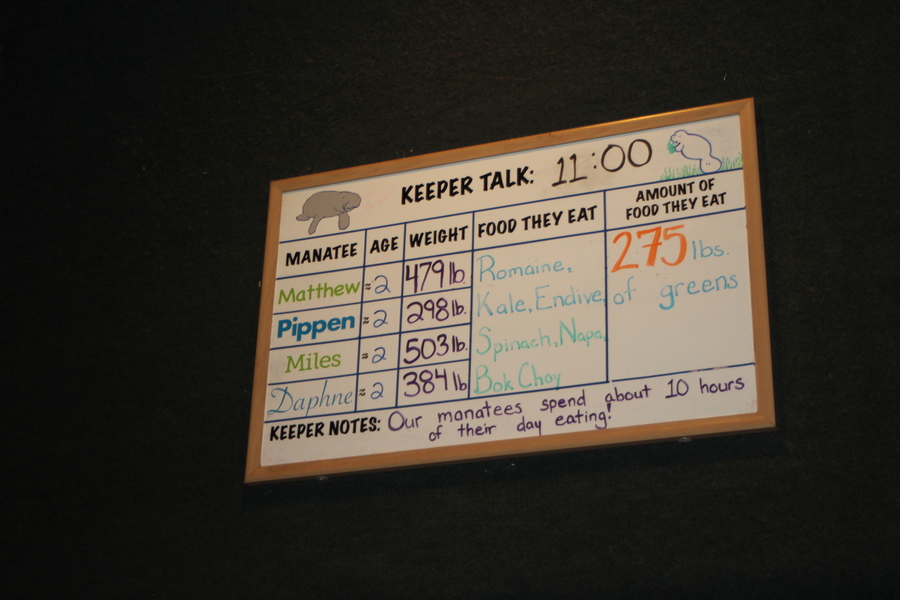 KEEPER TALK: 11:00
MANATEE AGE WEIGHT FOOD THEY EAT AMOUNT OF FOOD THEY EAT
Matthew ≈2 479 lb.
Pippen ≈2 298 lb.
Miles ≈2 503 lb.
Daphne ≈2 384 lb
Romaine,
Kale, Endive,
Spinach, Napa,
Bok Choy
275 lbs.
of greens
KEEPER NOTES: Our manatees spend about 10 hours
of their day eating!